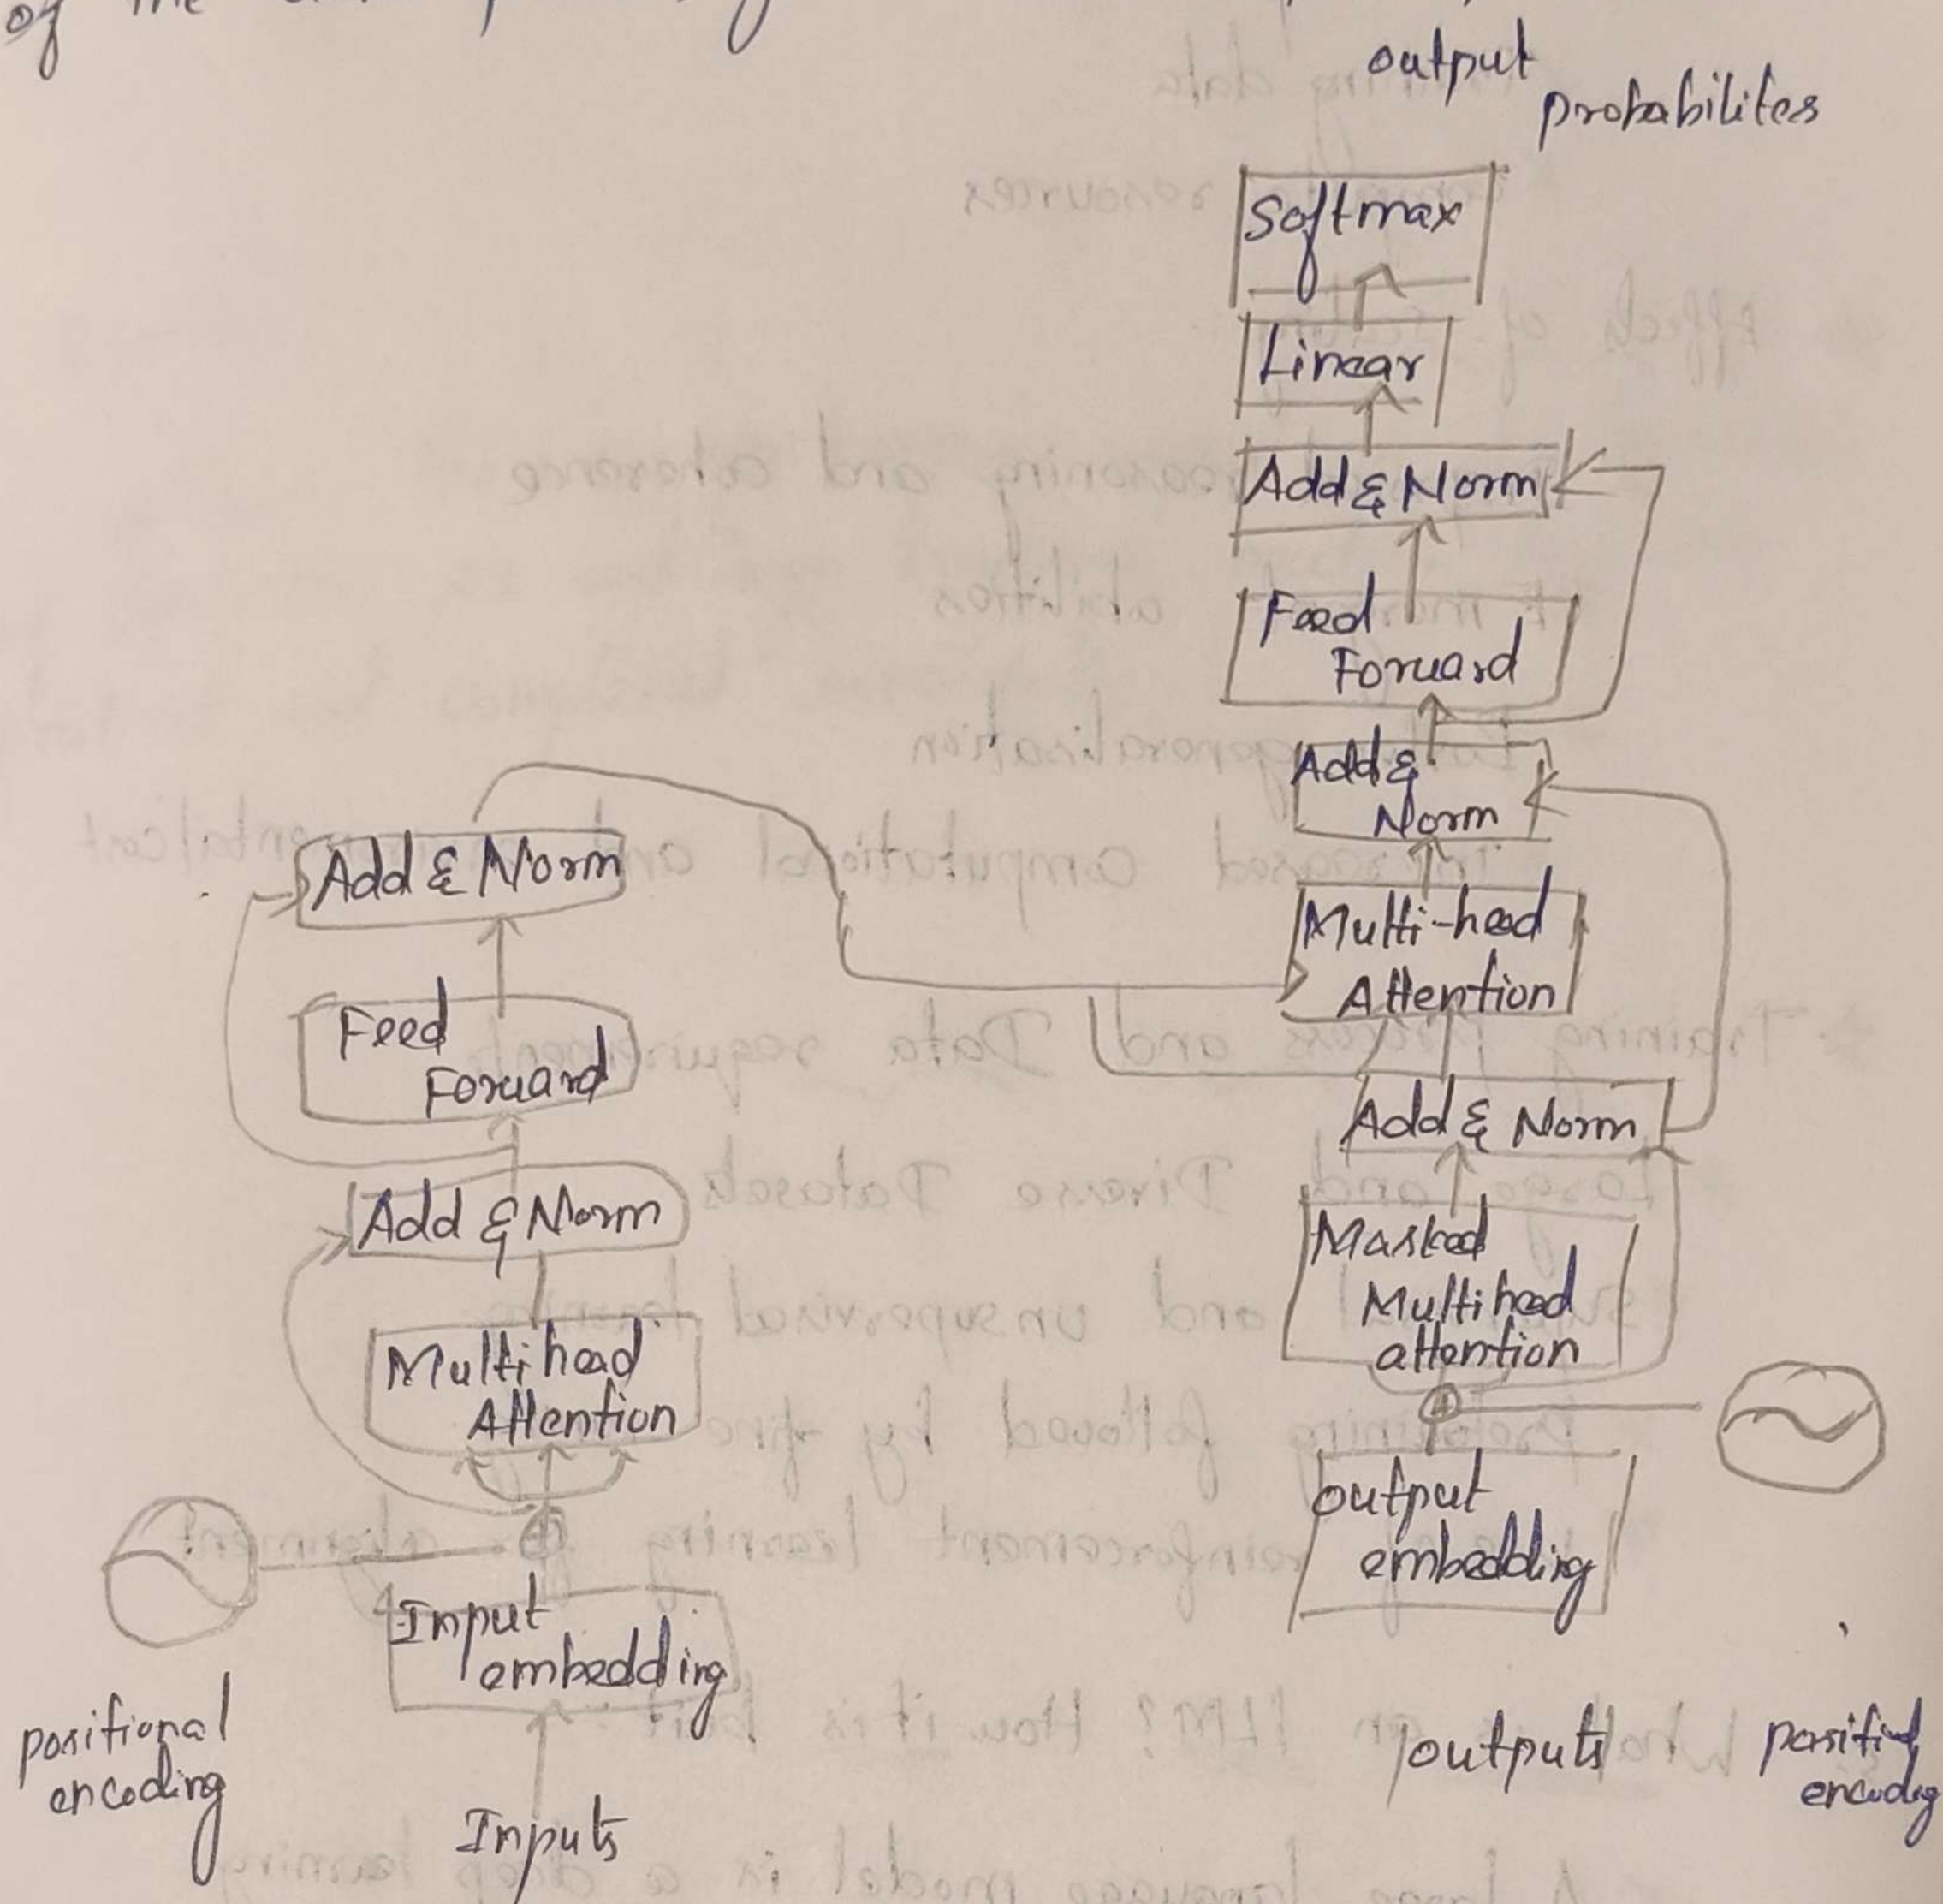 of the
output
probabilites
Softmax
Linear
Add & Norm
Feed
Forward
Add &
Norm
Multi-head
Attention
Add & Norm
Masked
Multihead
attention
output
embedding
outputs
positional
encoding
Add & Norm
Feed
Forward
Add & Norm
Multihead
Attention
Input
embedding
positional
encoding
Inputs